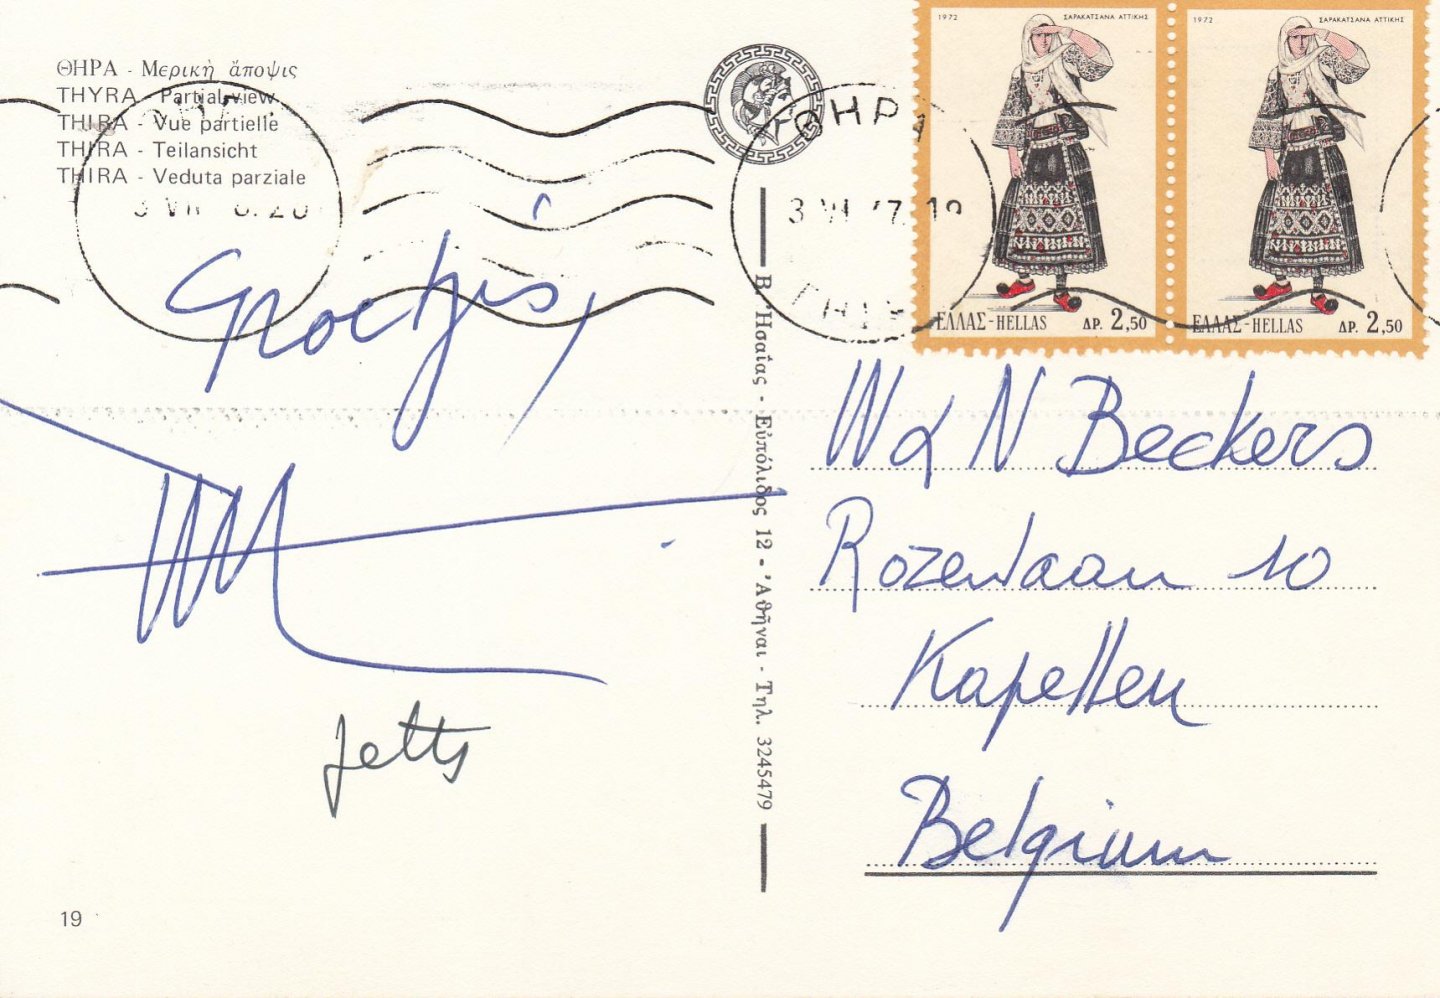 ΘΗΡΑ - Μερικὴ ἄποψις
THYRA - Partial view
THIRA - Vue partielle
THIRA - Teilansicht
THIRA - Veduta parziale
Groetjes,
Jetts
19
Β. Ἡσαΐας - Εὐπόλιδος 12 - Ἀθῆναι - Τηλ. 3245479
ΘΗΡΑ
1972 ΣΑΡΑΚΑΤΣΑΝΑ ΑΤΤΙΚΗΣ
ΕΛΛΑΣ-HELLAS ΔΡ. 2,50
1972 ΣΑΡΑΚΑΤΣΑΝΑ ΑΤΤΙΚΗΣ
ΕΛΛΑΣ-HELLAS ΔΡ. 2,50
W & N Beckers
Rozenlaan 10
Kapellen
Belgium